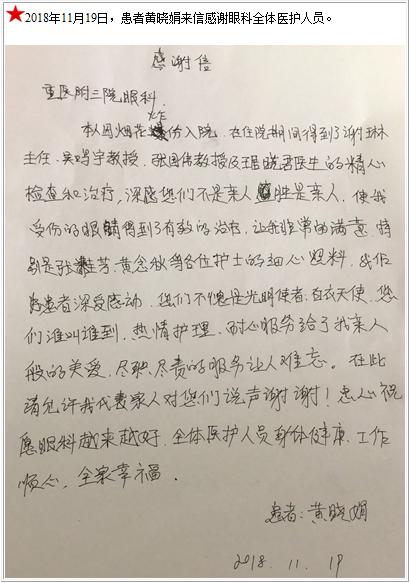 2018年11月19日，患者黄晓娟来信感谢眼科全体医护人员。
感谢信
重医附三院眼科
本人因烟花炸伤入院，在住院期间得到了谢琳
主任、吴鸣宇教授、张国伟教授及王晓君医生的精心
检查和治疗，深感您们不是亲人胜是亲人，使我
受伤的眼睛得到了有效的治疗，让我非常的满意，特
别是张芳、黄念秋等各位护士的细心照料，我作
为患者深受感动，您们不愧是光明使者，白衣天使，您
们谁叫谁到，热情护理，耐心服务给了我亲人
般的关爱，尽职尽责的服务让人难忘。在此
请允许我代表家人对您们说声谢谢！忠心祝
愿眼科越来越好，全体医护人员身体健康、工作
顺心，全家幸福。
患者：黄晓娟
2018.11.19